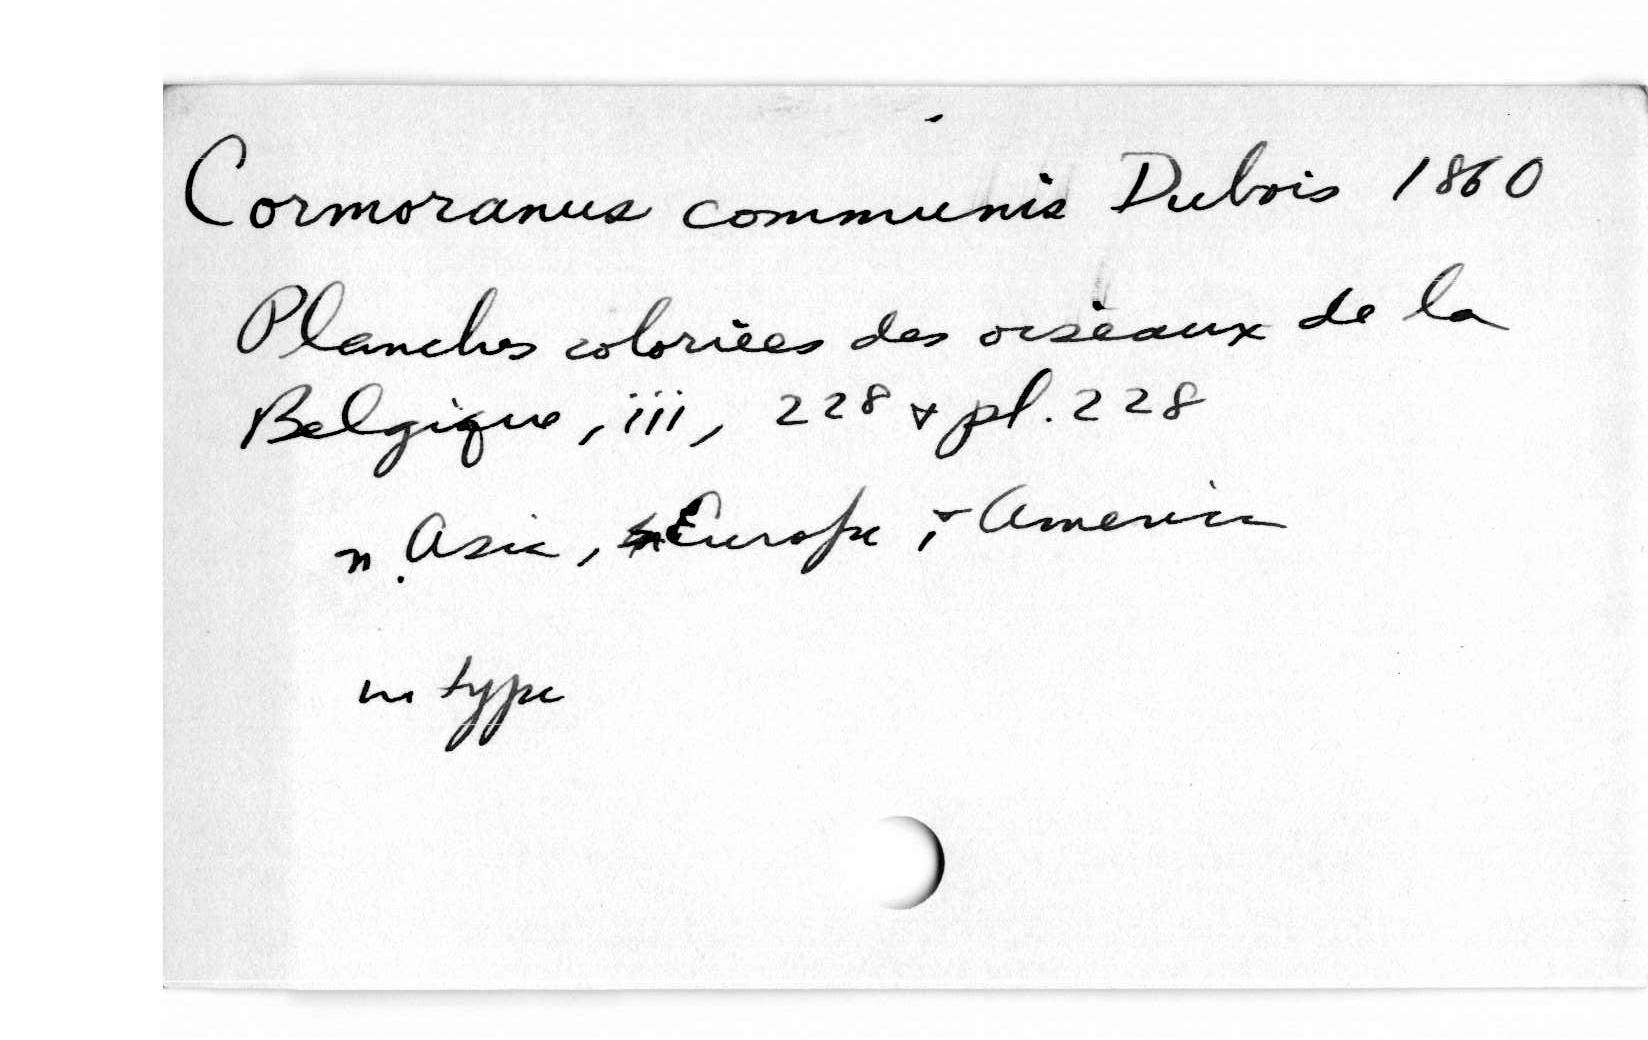 Cormoranus communis Dubois 1860
Planches coloriées des oiseaux de la
Belgique, iii, 228 & pl. 228
n. Asia, Europe, & America
no type